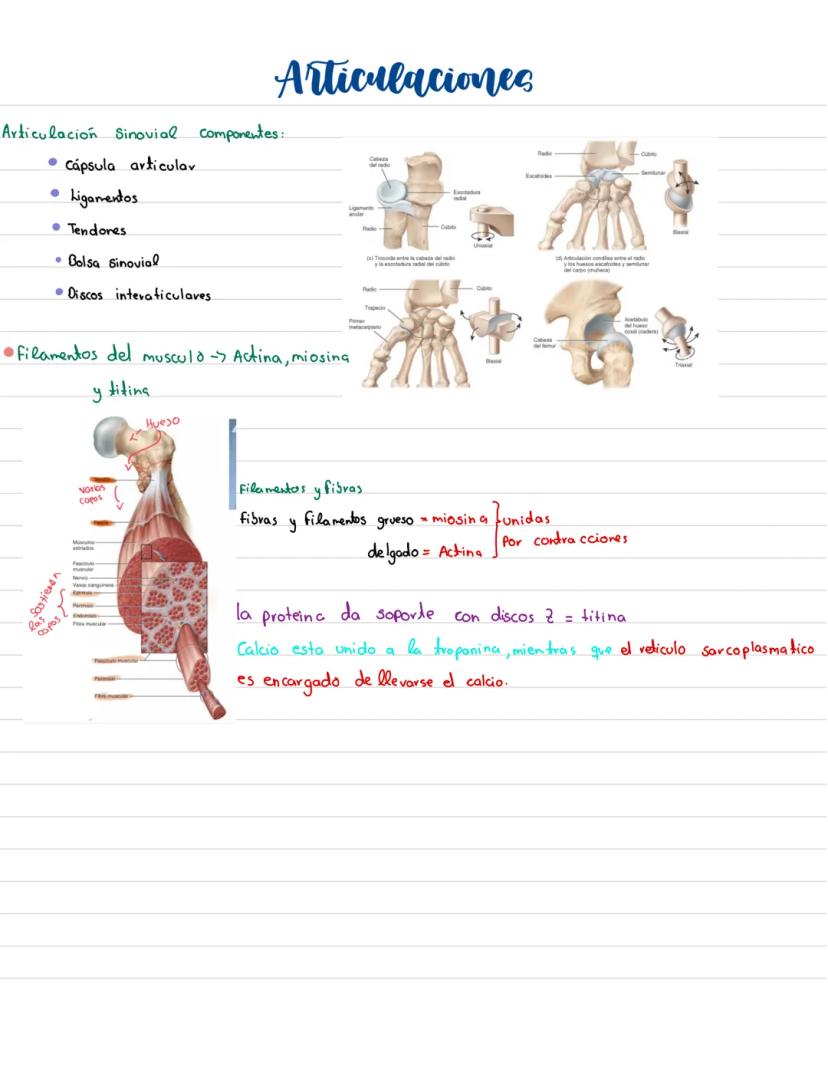 Articulaciones
Articulación Sinovial componentes:
Cápsula articular
Ligamentos
Tendores
Bolsa Sinovial
Discos interaticulares
Filamentos del musculo -> Actina, miosina
y titina
Cabeza
del radio
Escotadura
radial
Ligamento
anular
Radio
Cúbito
Uniaxial
(c) Trocoide entre la cabeza del radio
y la escotadura radial del cúbito
Radio
Cúbito
Escafoides
Semilunar
Biaxial
(d) Articulación condílea entre el radio
y los huesos escafoides y semilunar
del carpo (muñeca)
Radio
Cúbito
Trapecio
Primer
metacarpiano
Biaxial
Acetábulo
del hueso
coxal (cadera)
Cabeza
del fémur
Triaxial
Hueso
Varias
capas
Músculos
estriados
Fascículo
muscular
Nervio
Vasos sanguíneos
Epimisio
Perimisio
Endomisio
Fibra muscular
Sostienen
las
capas
Fascículo muscular
Perimisio
Fibra muscular
Filamentos y fibras
fibras y filamentos grueso = miosina
delgado = Actina
unidas
por contracciones
la proteina da soporte con discos Z = titina
Calcio esta unido a la troponina, mientras que el reticulo sarcoplasmatico
es encargado de llevarse el calcio.